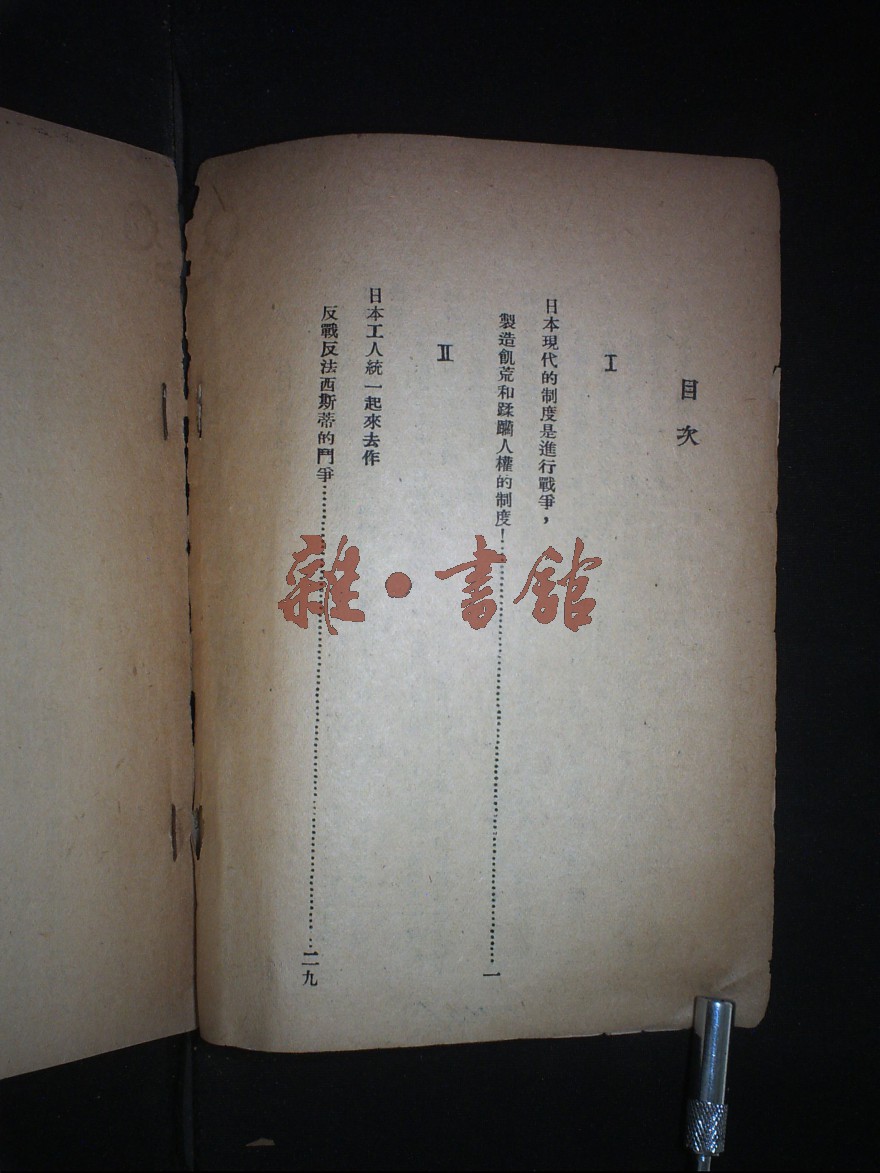 目次
I
日本現代的制度是進行戰爭，
製造飢荒和蹂躪人權的制度！……一
II
日本工人統一起來去作
反戰反法西斯蒂的鬥爭……二九
雜·書館